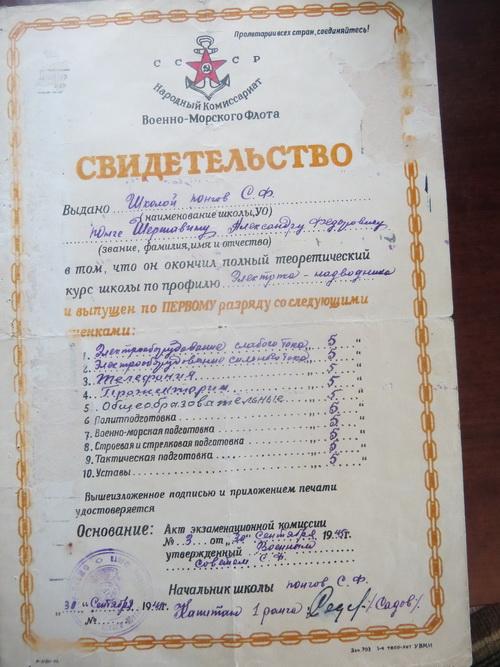 Пролетарии всех стран, соединяйтесь!
СССР
Народный Комиссариат
Военно-Морского Флота
СВИДЕТЕЛЬСТВО
Выдано Школой юнгов С.Ф.
(наименование школы, УО)
юнге Шершавину Александру Федоровичу
(звание, фамилия, имя и отчество)
в том, что он окончил полный теоретический
курс школы по профилю Электрика-надводника
и выпущен по ПЕРВОМУ разряду со следующими
оценками:
1. Электрооборудование слабого тока „ 5 “
2. Электрооборудование сильного тока „ 5 “
3. Телефония „ 5 “
4. Прожектория „ 5 “
5. Общеобразовательные „ 5 “
6. Политподготовка „ 5 “
7. Военно-морская подготовка „ 5 “
8. Строевая и стрелковая подготовка „ 5 “
9. Тактическая подготовка „ 5 “
10. Уставы „ 5 “
Вышеизложенное подписью и приложением печати
удостоверяется
Основание: Акт экзаменационной комиссии
№ 3 от „30“ Сентября 1945г.
утвержденный Военным
советом С.Ф.
Начальник школы юнгов С.Ф.
„30“ Сентября 1945г. Капитан 1 ранга /Садов/
№
Зак. 703 1-я типо-лит УВМИ